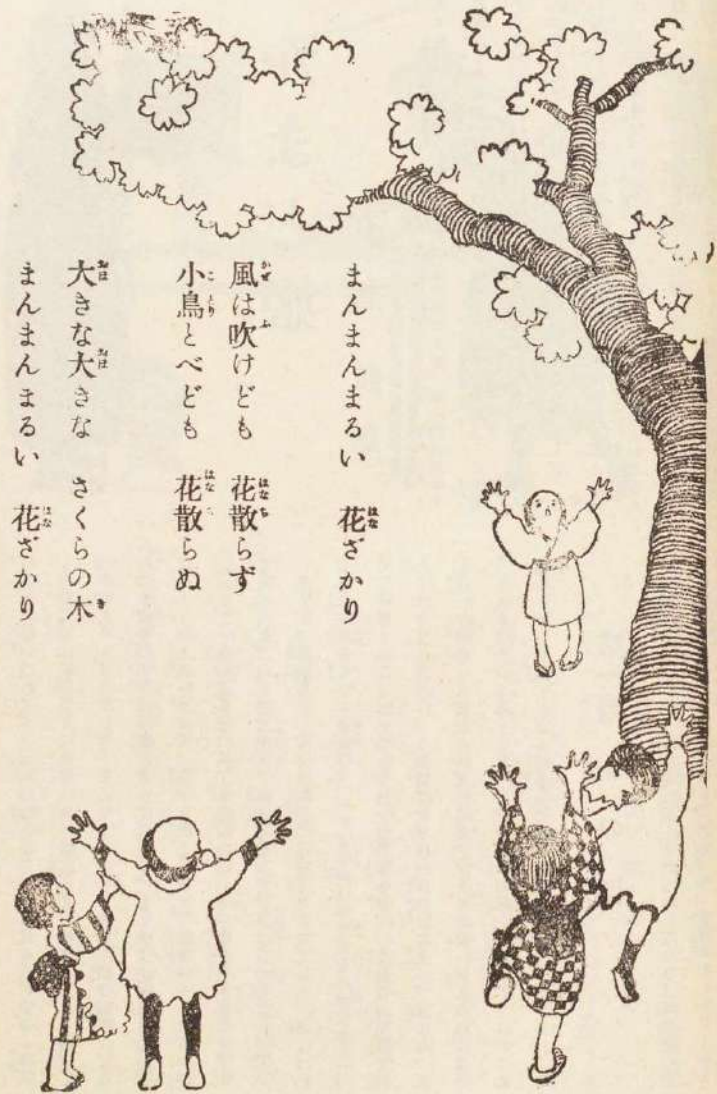 まんまんまるい　花ざかり
風は吹けども　花散らず
小鳥とべども　花散らぬ
大きな大きな　さくらの木
まんまんまるい　花ざかり